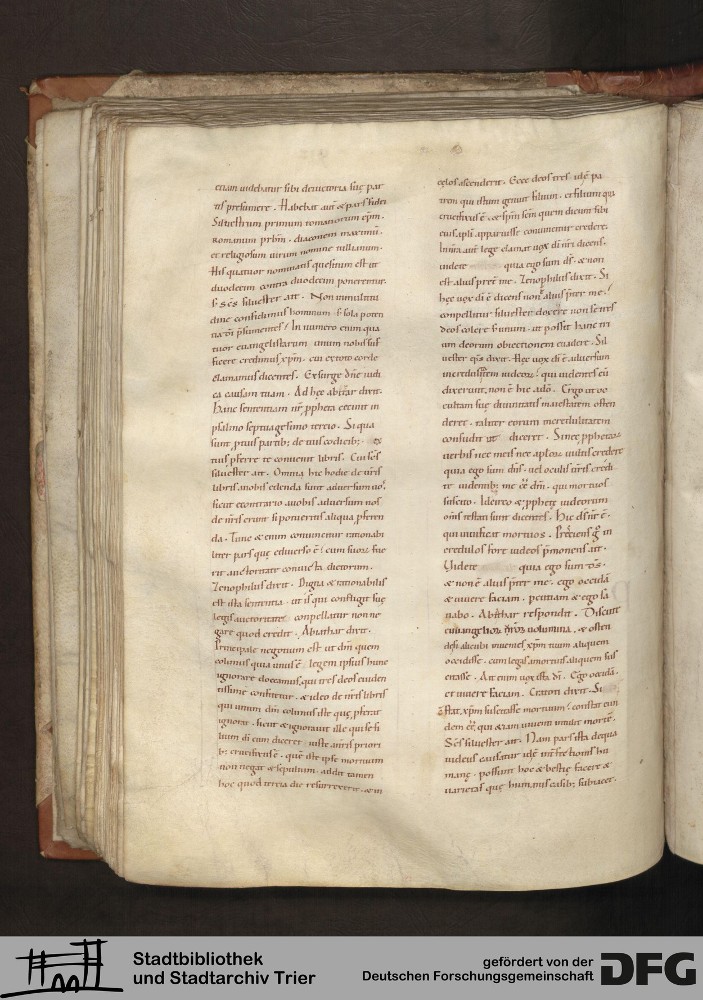 etiam uidebatur sibi de uictoria suę par
tis presumere. Habebat aut̄ & pars fidei
Siluestrum primum romanorum ep̄m.
Romanum prb̄m. diaconem maximū.
et religiosum uirum nomine tullianum.
His quatuor nominatis quesitum est ut
duodecim contra duodecim ponerentur.
S sc̄s siluester ait. Non in multitu
dine confidimus hominum. s; sola poten
tia dī p̄sumentes! In numero enim qua
tuor euangelistarum. unum nobis suf
ficere credimus xp̄m. cui ex toto corde
clamamus dicentes. Exsurge dn̄e iudi
ca causam tuam. Ad hęc abiathar dixit.
Hanc sententiam ur̄ ppheta cecinit in
psalmo septuagesimo tercio. Si qua
sunt ꝓtuis partib; de tuis codicib; ex
tuis pferre te conuenit libris. Cui sc̄s
siluester ait. Omnia hic hodie de ur̄is
libris a nobis edenda sunt aduersum uos.
sicut econtrario a uobis aduersum nos
de nr̄is erunt si poueritis aliqua pferen
da. Tunc & enim conuincitur rationabi
liter pars quę e diuerso ē! cum suoꝝ fue
rit auctoritate conuicta dictorum.
Zenophilus dixit. Digna & rationabilis
est ista sententia. ut is qui confligit suę
legis auctoritate compellatur non ne
gare quod credit. Abiathar dixit.
Principale negotium est ut dm̄ quem
colimus quia unus ē legem ipsius hunc
ignorare doceamus, qui tres deos euiden
tissime confitetur. & ideo de nr̄is libris
qui unum dm̄ colimus iste quę pferat
ignorat. sicut & ignorauit ille qui se fi
lium dī cum diceret iuste a nr̄is priori
b; crucifixus ē. quē iste ipse mortuum
non negat & sepultum. addit tamen
hoc quod tercia die resurrexerit. & in
cęlos ascenderit. Ecce deos tres. idē pa
trem qui istum genuit filium. et filium qui
crucifixus ē. & sp̄m sc̄m quem dicunt sibi
eius apl̄i apparuisse. conuincitur credere.
In nr̄a aut̄ lege clamat uox dī nr̄i dicens.
uidete quia ego sum ds̄. & non
est alius p̄ter me. Zenophilus dixit. Si
hęc uox dī ē dicens non alius p̄ter me!
conpellitur siluester docere non se tres
deos colere s; unum. ut possit hanc tri
um deorum obiectionem euadere. Sil
uester ep̄s dixit. Hęc uox dī ē aduersum
incredulitatem iudeoꝝ! qui uidentes eū
dixerunt. non ē hic ads̄. Ergo ut oc
cultam suę diuinitatis maiestatem osten
deret. taliter eorum incredulitatem
confudit ut diceret. Si nec pphetaꝝ
uerbis nec meis nec apl̄oꝝ uultis credere
quia ego sum dn̄s. uel oculis ur̄is credi
te uidentib; me ēē dm̄. qui mortuos
suscito. Idcirco & pphetę iudeorum
om̄s testati sunt dicentes. Hic ds̄ nr̄ ē.
qui uiuificat mortuos. Presciens g in
credulos fore iudeos p̄monens ait.
Uidete quia ego sum ds̄.
& non ē alius p̄ter me. ego occidā
& uiuere faciam. percutiam & ego sa
nabo. Abiathar respondit. Discute
euuangelioꝝ ur̄oꝝ uolumina. & osten
de si alicubi inuenies xp̄m tuum aliquem
occidisse. cum legas a mortuis aliquem sus
citasse. Ait enim uox ista dī. Ego occidā.
et uiuere faciam. Craton dixit. Si
c̄stat, xp̄m suscitasse mortuum! constat eun
dem ēē, qui & iam uiuenti intulit mortē.
Sc̄s siluester ait. Nam pars ista de qua
iudeus causatur idē interfectionis hu
manę. possunt hoc & bestię facere &
uarietas quę humanis casib; subiacet.
Stadtbibliothek
und Stadtarchiv Trier
gefördert von der
Deutschen Forschungsgemeinschaft
DFG